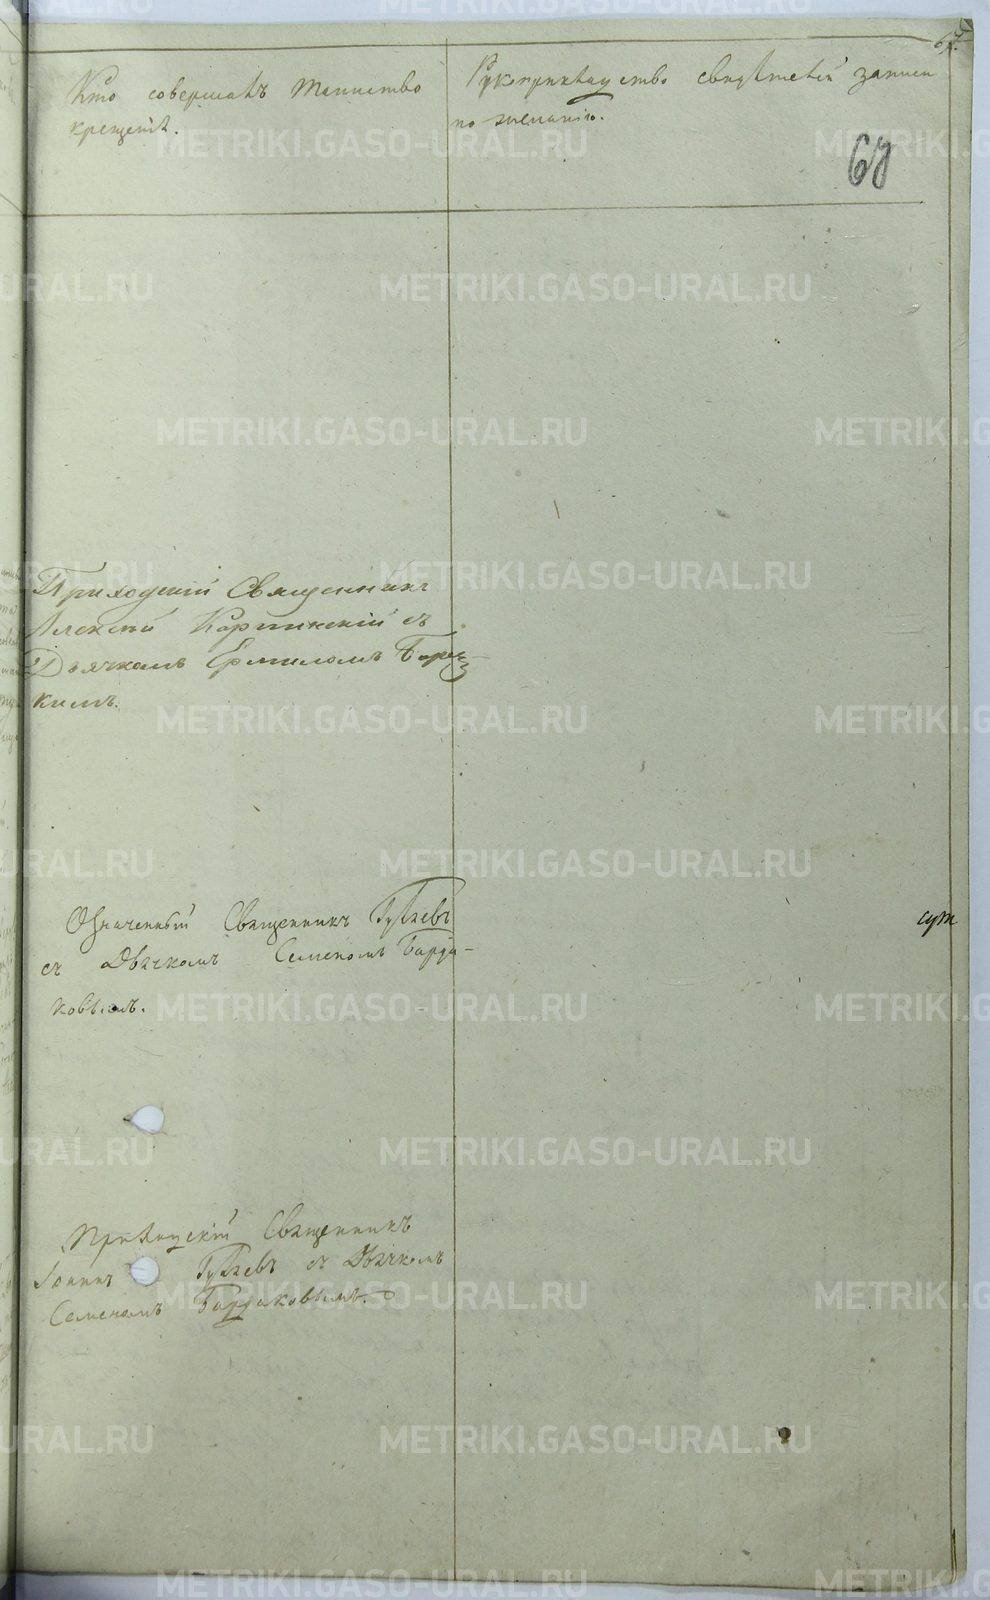 67.
Кто совершалъ таинство
крещенія.
Рукоприкладство свидѣтелей записи
по желанію.
67
Приходскій Священникъ
Алексѣй Карпинскій съ
Дьячкомъ Ермиломъ
кимъ.
Означенный Священникъ Гуляевъ
съ Дьячкомъ Семеномъ Бурда-
ковымъ.
Приходскій Священникъ
Іоаннъ Гуляевъ съ Дьячкомъ
Семеномъ Бурдаковымъ.
METRIKI.GASO-URAL.RU